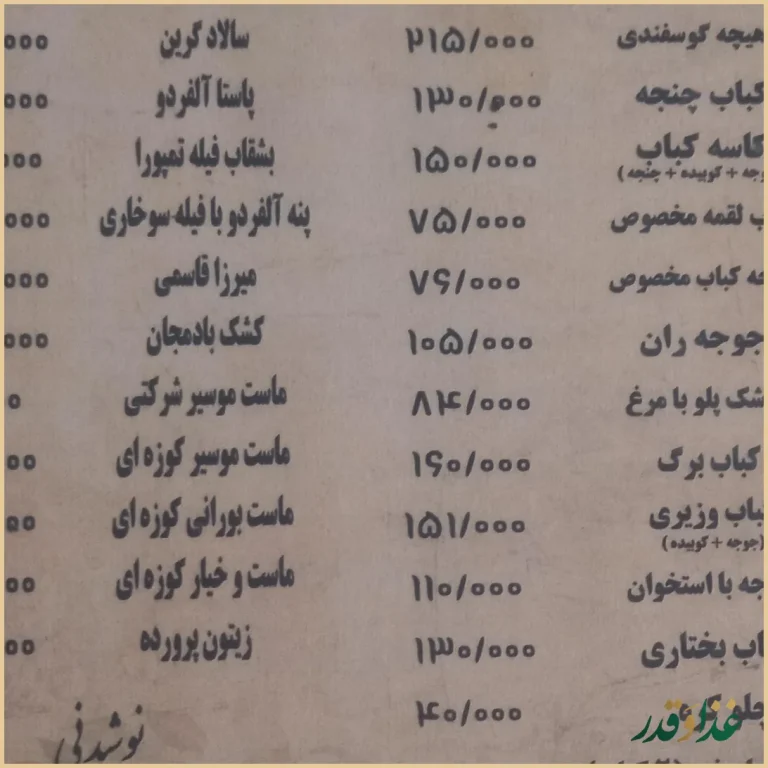 هیچه گوسفندی ۲۱۵/۰۰۰ سالاد گرین ۰۰۰
کباب چنجه ۱۳۰/۰۰۰ پاستا آلفردو ۰۰۰
کاسه کباب ۱۵۰/۰۰۰ بشقاب فیله تمپورا ۰۰۰
وجه + کوبیده + چنجه )
ب لقمه مخصوص ۷۵/۰۰۰ پنه آلفردو با فیله سوخاری ۰۰۰
جه کباب مخصوص ۷۶/۰۰۰ میرزا قاسمی ۰۰۰
جوجه ران ۱۰۵/۰۰۰ کشک بادمجان ۰۰۰
شک پلو با مرغ ۸۴/۰۰۰ ماست موسیر شرکتی ۰
کباب برگ ۱۶۰/۰۰۰ ماست موسیر کوزه ای ۰۰
باب وزیری ۱۵۱/۰۰۰ ماست بورانی کوزه ای ۰۰
(جوجه + کوبیده )
جه با استخوان ۱۱۰/۰۰۰ ماست و خیار کوزه ای ۰۰
اب بختاری ۱۳۰/۰۰۰ زیتون پرورده ۰۰
چلو کره ۴۰/۰۰۰
نوشیدنی
غذا و قدر